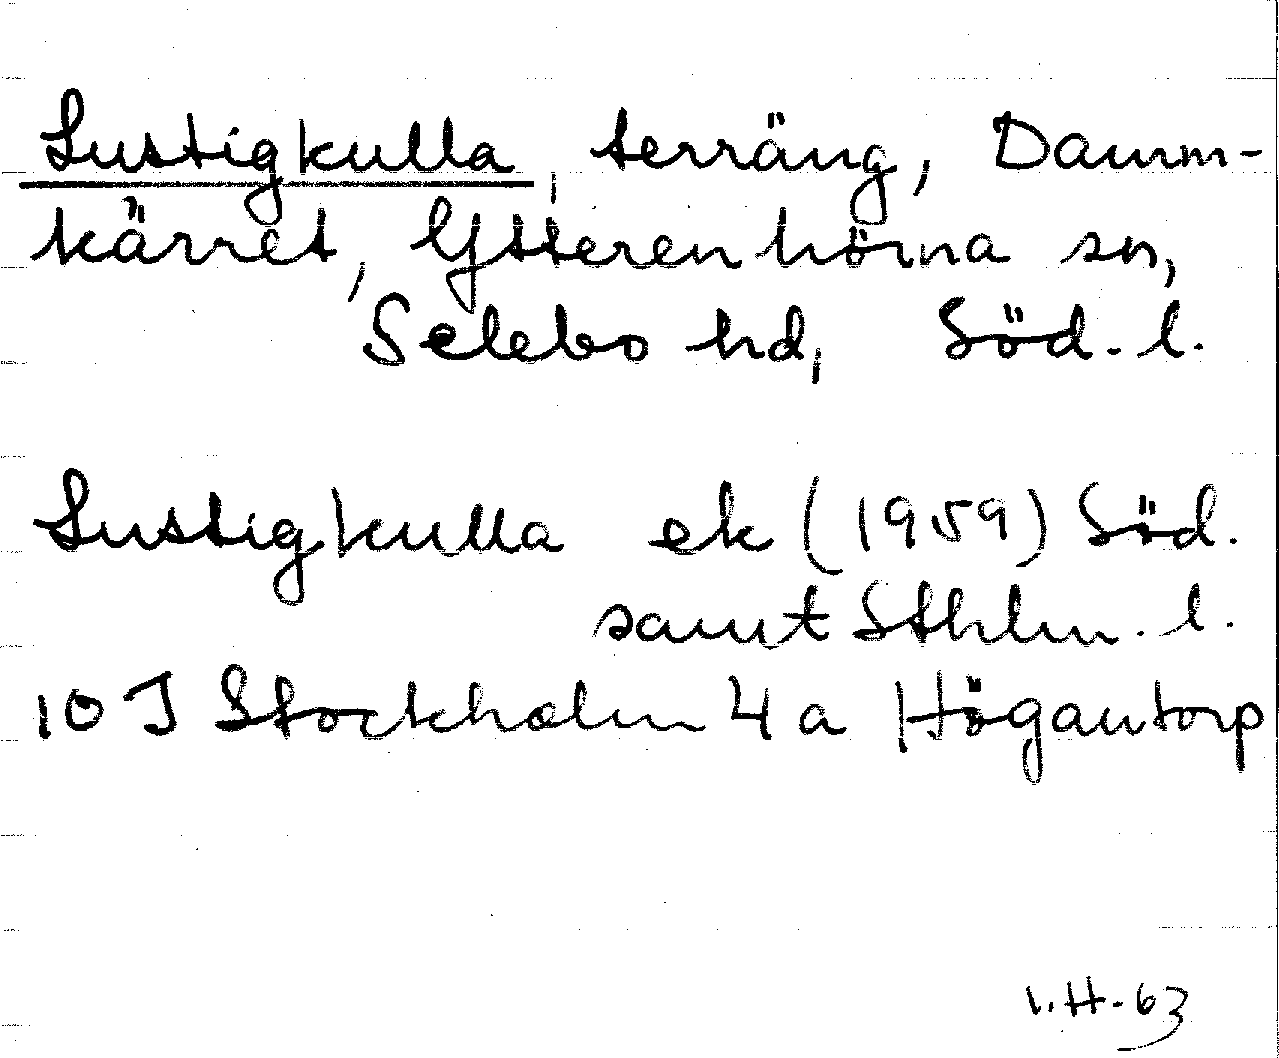 Lustigkulla, terräng, Damm-
kärret, Ytterenhörna sn,
Selebo hd, Söd. l.
Lustigkulla ek (1959) Söd.
samt Sthlm. l.
10 I Stockholm 4 a Högantorp
I.H-63